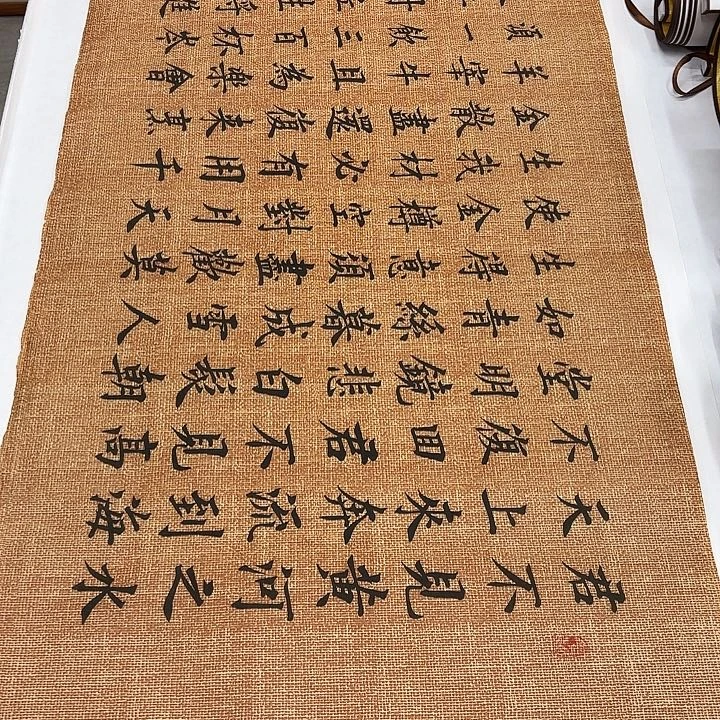 君不見黃河之水
天上來奔流到海
不復回君不見高
堂明鏡悲白髮朝
如青絲暮成雪人
生得意須盡歡莫
使金樽空對月天
生我材必有用千
金散盡還復來烹
羊宰牛且為樂會
須一飲三百杯岑
生將進